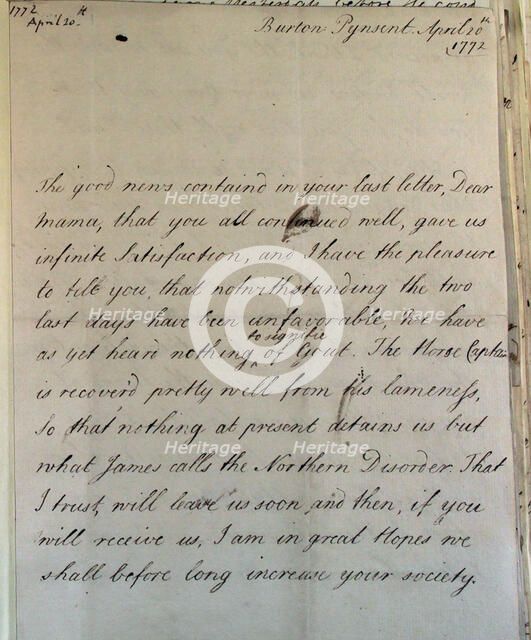 1772
April 20th
Burton Pynsent April 20th
1772
The good news contain'd in your last letter, Dear
Mama, that you all continued well, gave us
infinite Satisfaction, and I have the pleasure
to tell you, that notwithstanding the two
last days have been unfavorable, we have
to signifie
as yet heard nothing ^ of Gout. The Horse Captain
is recover'd pretty well from his lameness,
So that nothing at present detains us but
what James calls the Northern Disorder. That
I trust, will leave us soon, and then, if you
will receive us, I am in great Hopes we
shall before long increase your society.
Heritage
Heritage
Heritage
Heritage
Heritage
Heritage
Heritage
Heritage
C